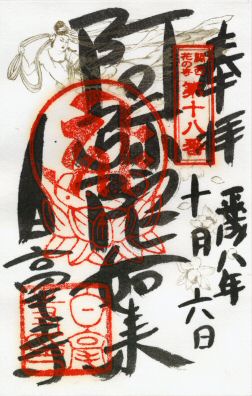 奉拝
平成八年
十月六日
関西花の寺
第十八番
阿弥陀如来
白毫寺